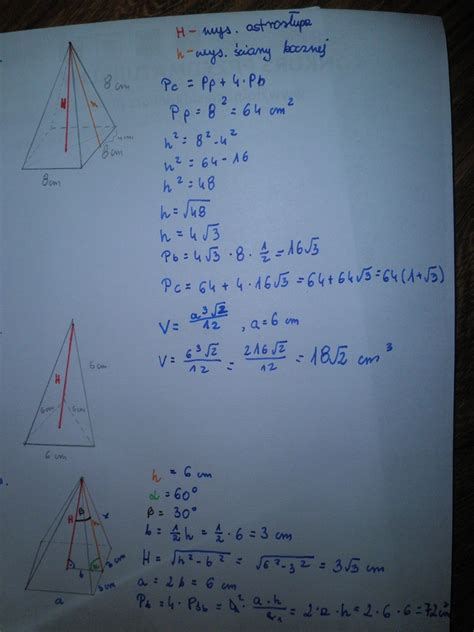 H - wys. ostrosłupa
h - wys. ściany bocznej
Pc = Pp + 4 · Pb
Pp = 8² = 64 cm²
h² = 8² - 4²
h² = 64 - 16
h² = 48
h = √48
h = 4√3
Pb = 4√3 · 8 · 1/2 = 16√3
Pc = 64 + 4 · 16√3 = 64 + 64√3 = 64(1+√3)
H
h
8 cm
8 cm
8 cm
V = a³√2/12 , a = 6 cm
V = 6³√2/12 = 216√2/12 = 18√2 cm³
H
6 cm
6 cm
6 cm
6 cm
h = 6 cm
α = 60°
β = 30°
b = 1/2 h = 1/2 · 6 = 3 cm
H = √h² - b² = √6² - 3² = 3√3 cm
a = 2b = 6 cm
Pb = 4 · = 2 · a · h = 2 · 6 · 6 = 72 cm²
β
H
b
a